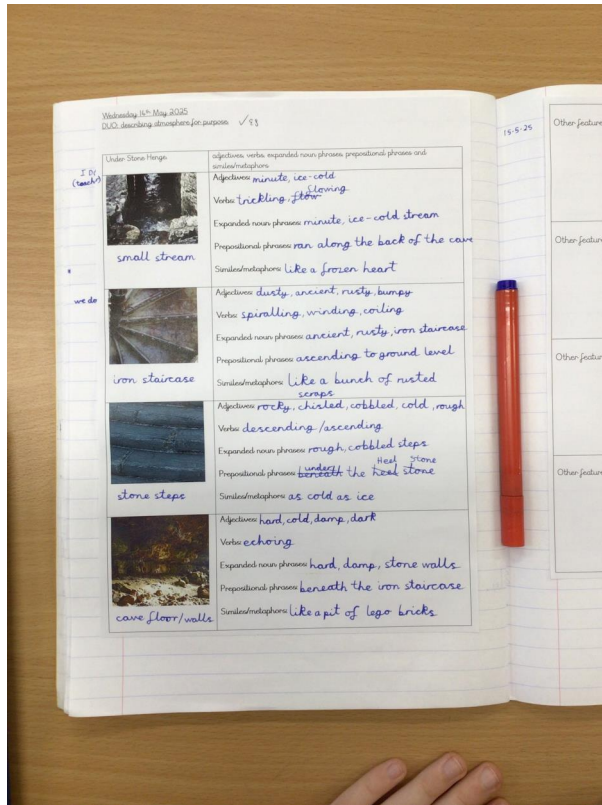 Wednesday 14th May 2025
DUO: describing atmosphere for purpose ✓
I Do
(teacher)
Under Stone Henge
adjectives, verbs, expanded noun phrases, prepositional phrases and
similes/metaphors
Adjectives: minute, ice-cold
flowing
Verbs: trickling, flow
Expanded noun phrases: minute, ice-cold stream
Prepositional phrases: ran along the back of the cave
Similes/metaphors: like a frozen heart
small stream
we do
Adjectives: dusty, ancient, rusty, bumpy
Verbs: spiralling, winding, coiling
Expanded noun phrases: ancient, rusty, iron staircase
Prepositional phrases: ascending to ground level
Similes/metaphors: like a bunch of rusted
scraps
iron staircase
Adjectives: rocky, chisled, cobbled, cold, rough
Verbs: descending/ascending
Expanded noun phrases: rough, cobbled steps
under Heel Stone
Prepositional phrases: beneath the heel stone
Similes/metaphors: as cold as ice
stone steps
Adjectives: hard, cold, damp, dark
Verbs: echoing
Expanded noun phrases: hard, damp, stone walls
Prepositional phrases: beneath the iron staircase
Similes/metaphors: like a pit of lego bricks
cave floor/walls
15-5-25
Other feature
Other feature
Other feature
Other feature